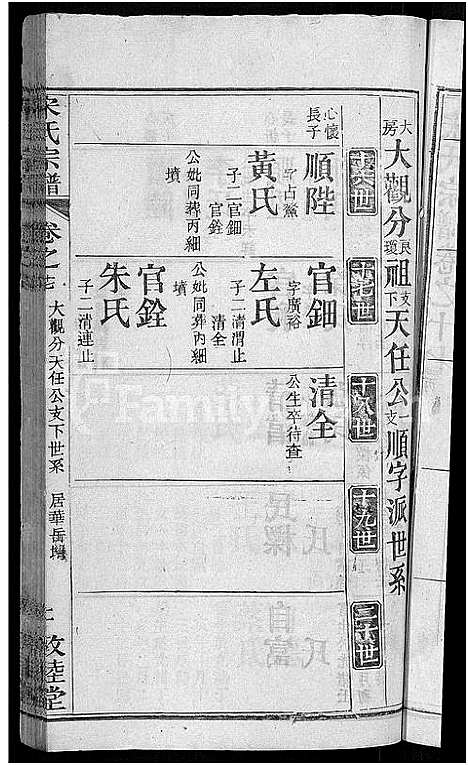 大房大觀分良瓊祖支下天任公一支順字派世系
十六世
十七世
十八世
十九世
二十世
心懷長子
順陛
字占黨
黃氏
子二官鈿
官銓
公妣同葬丙細
墳
官鈿
字廣裕
左氏
子二清渭止
清全
公妣同葬內細
墳
官銓
朱氏
子二清連止
清全
公生卒待查
宋氏宗譜
卷之
大觀分天任公支下世系
居華岳塆
敦睦堂